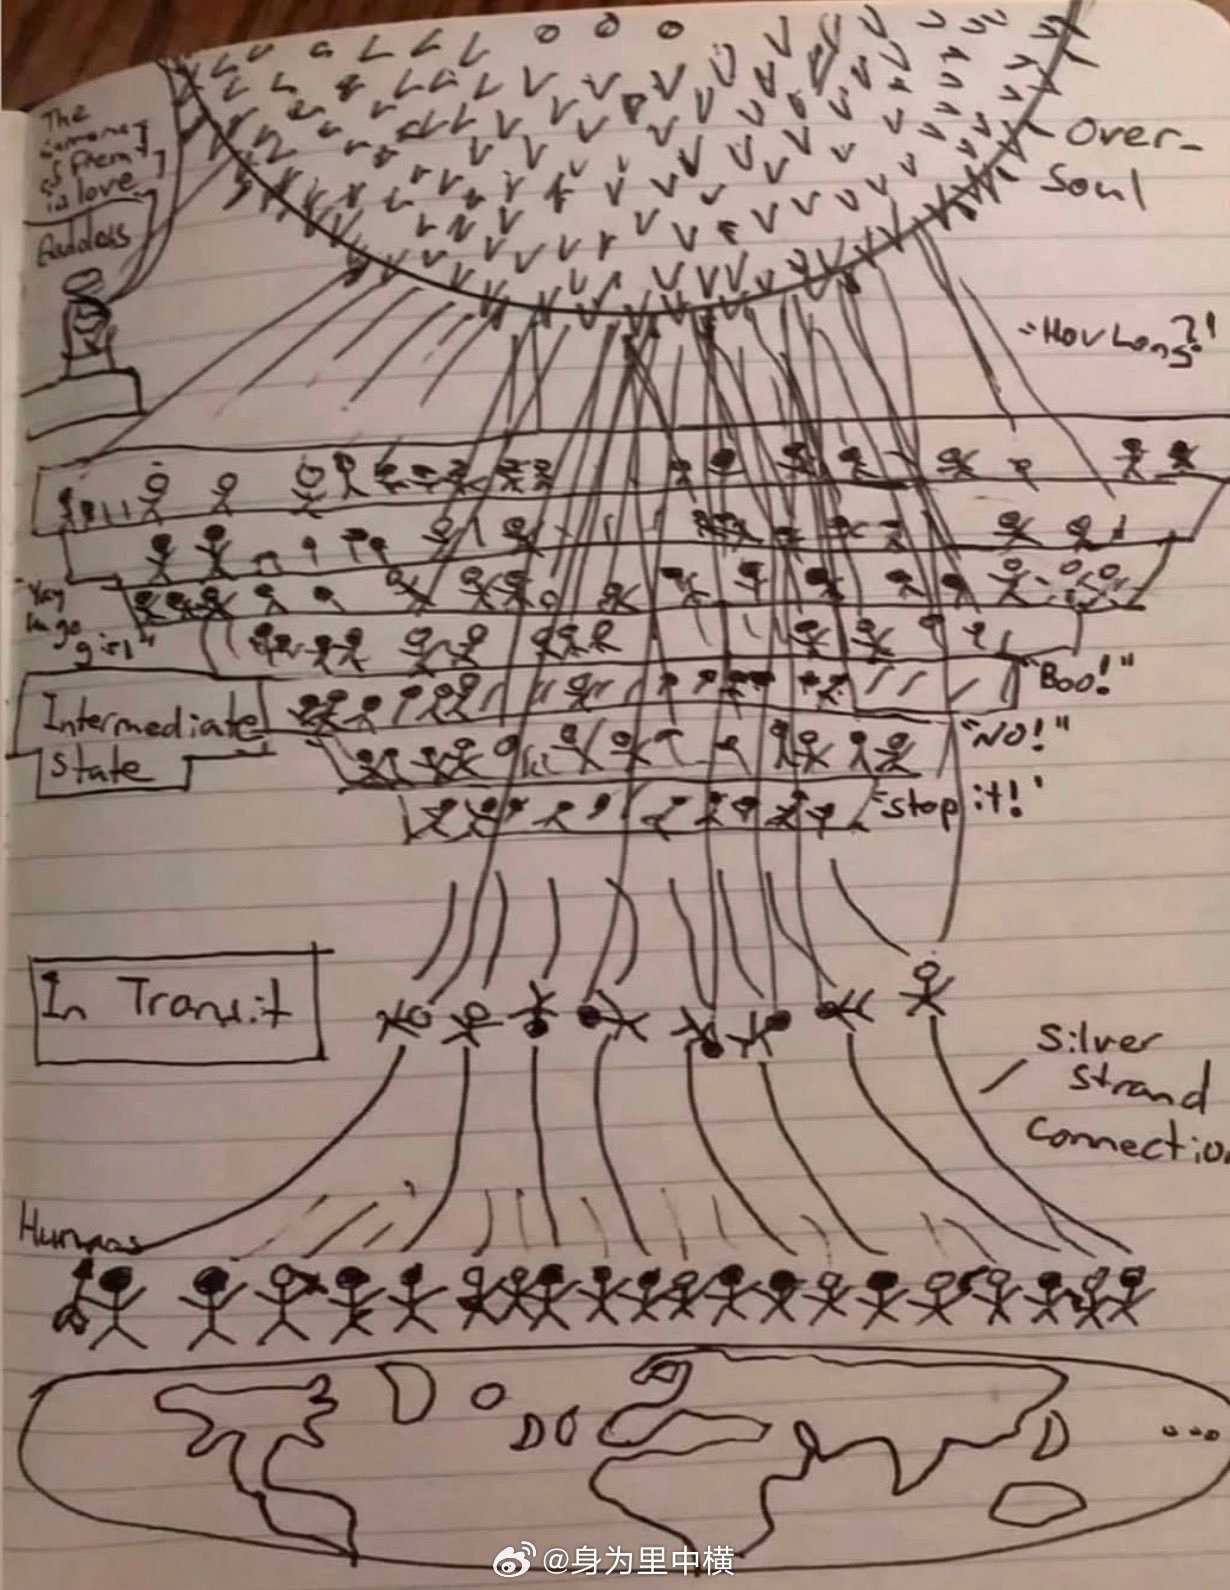 The
is love
Goddess
Over-
Soul
"How Long?!
"Yay
girl"
Intermediate
State
"Boo!"
"NO!"
"Stop it!"
In Transit
Silver
Strand
Connection
Humans
@身为里中横